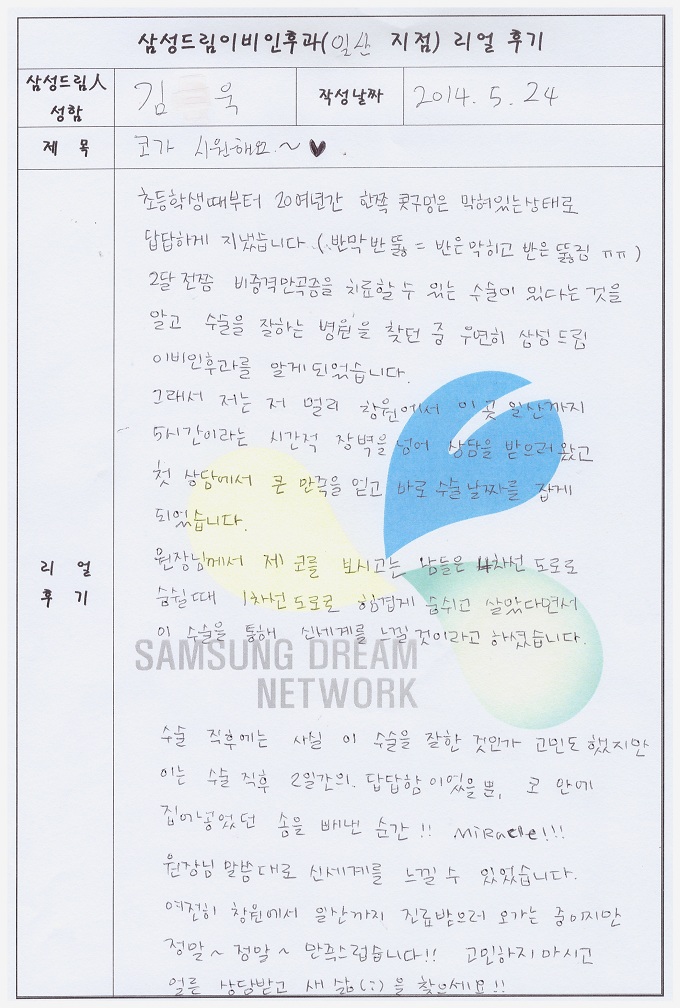 삼성드림이비인후과(일산 지점) 리얼 후기
삼성드림人 성함
김 욱
작성날짜
2014. 5. 24
제 목
코가 시원해요~ ♥.
리 얼 후 기
초등학생때부터 20여년간 한쪽 콧구멍은 막혀있는상태로
답답하게 지냈습니다 (반막반뚫 = 반은막히고 반은 뚫림 ㅠㅠ)
2달 전쯤 비중격만곡증을 치료할 수 있는 수술이 있다는 것을
알고 수술을 잘하는 병원을 찾던 중 우연히 삼성드림
이비인후과를 알게되었습니다.
그래서 저는 저 멀리 창원에서 이곳 일산까지
5시간이라는 시간적 장벽을 넘어 상담을 받으러왔고
첫 상담에서 큰 만족을 얻고 바로 수술날짜를 잡게
되었습니다.
원장님께서 제 코를 보시고는 남들은 4차선 도로로
숨쉴때 1차선도로로 힘겹게 숨쉬고 살았다면서
이 수술을 통해 신세계를 느낄 것이라고 하셨습니다.
SAMSUNG DREAM
NETWORK
수술 직후에는 사실 이 수술을 잘한 것인가 고민도 했지만
이는 수술 직후 2일간의 답답함이었을뿐, 코 안에
집어넣었던 솜을 빼낸 순간!! MiRacle!!!
원장님 말씀대로 신세계를 느낄 수 있었습니다.
여전히 창원에서 일산까지 진료받으러 오가는 중이지만
정말~ 정말~ 만족스럽습니다!! 고민하지마시고
얼른 상담받고 새 삶(:)을 찾으세요!!